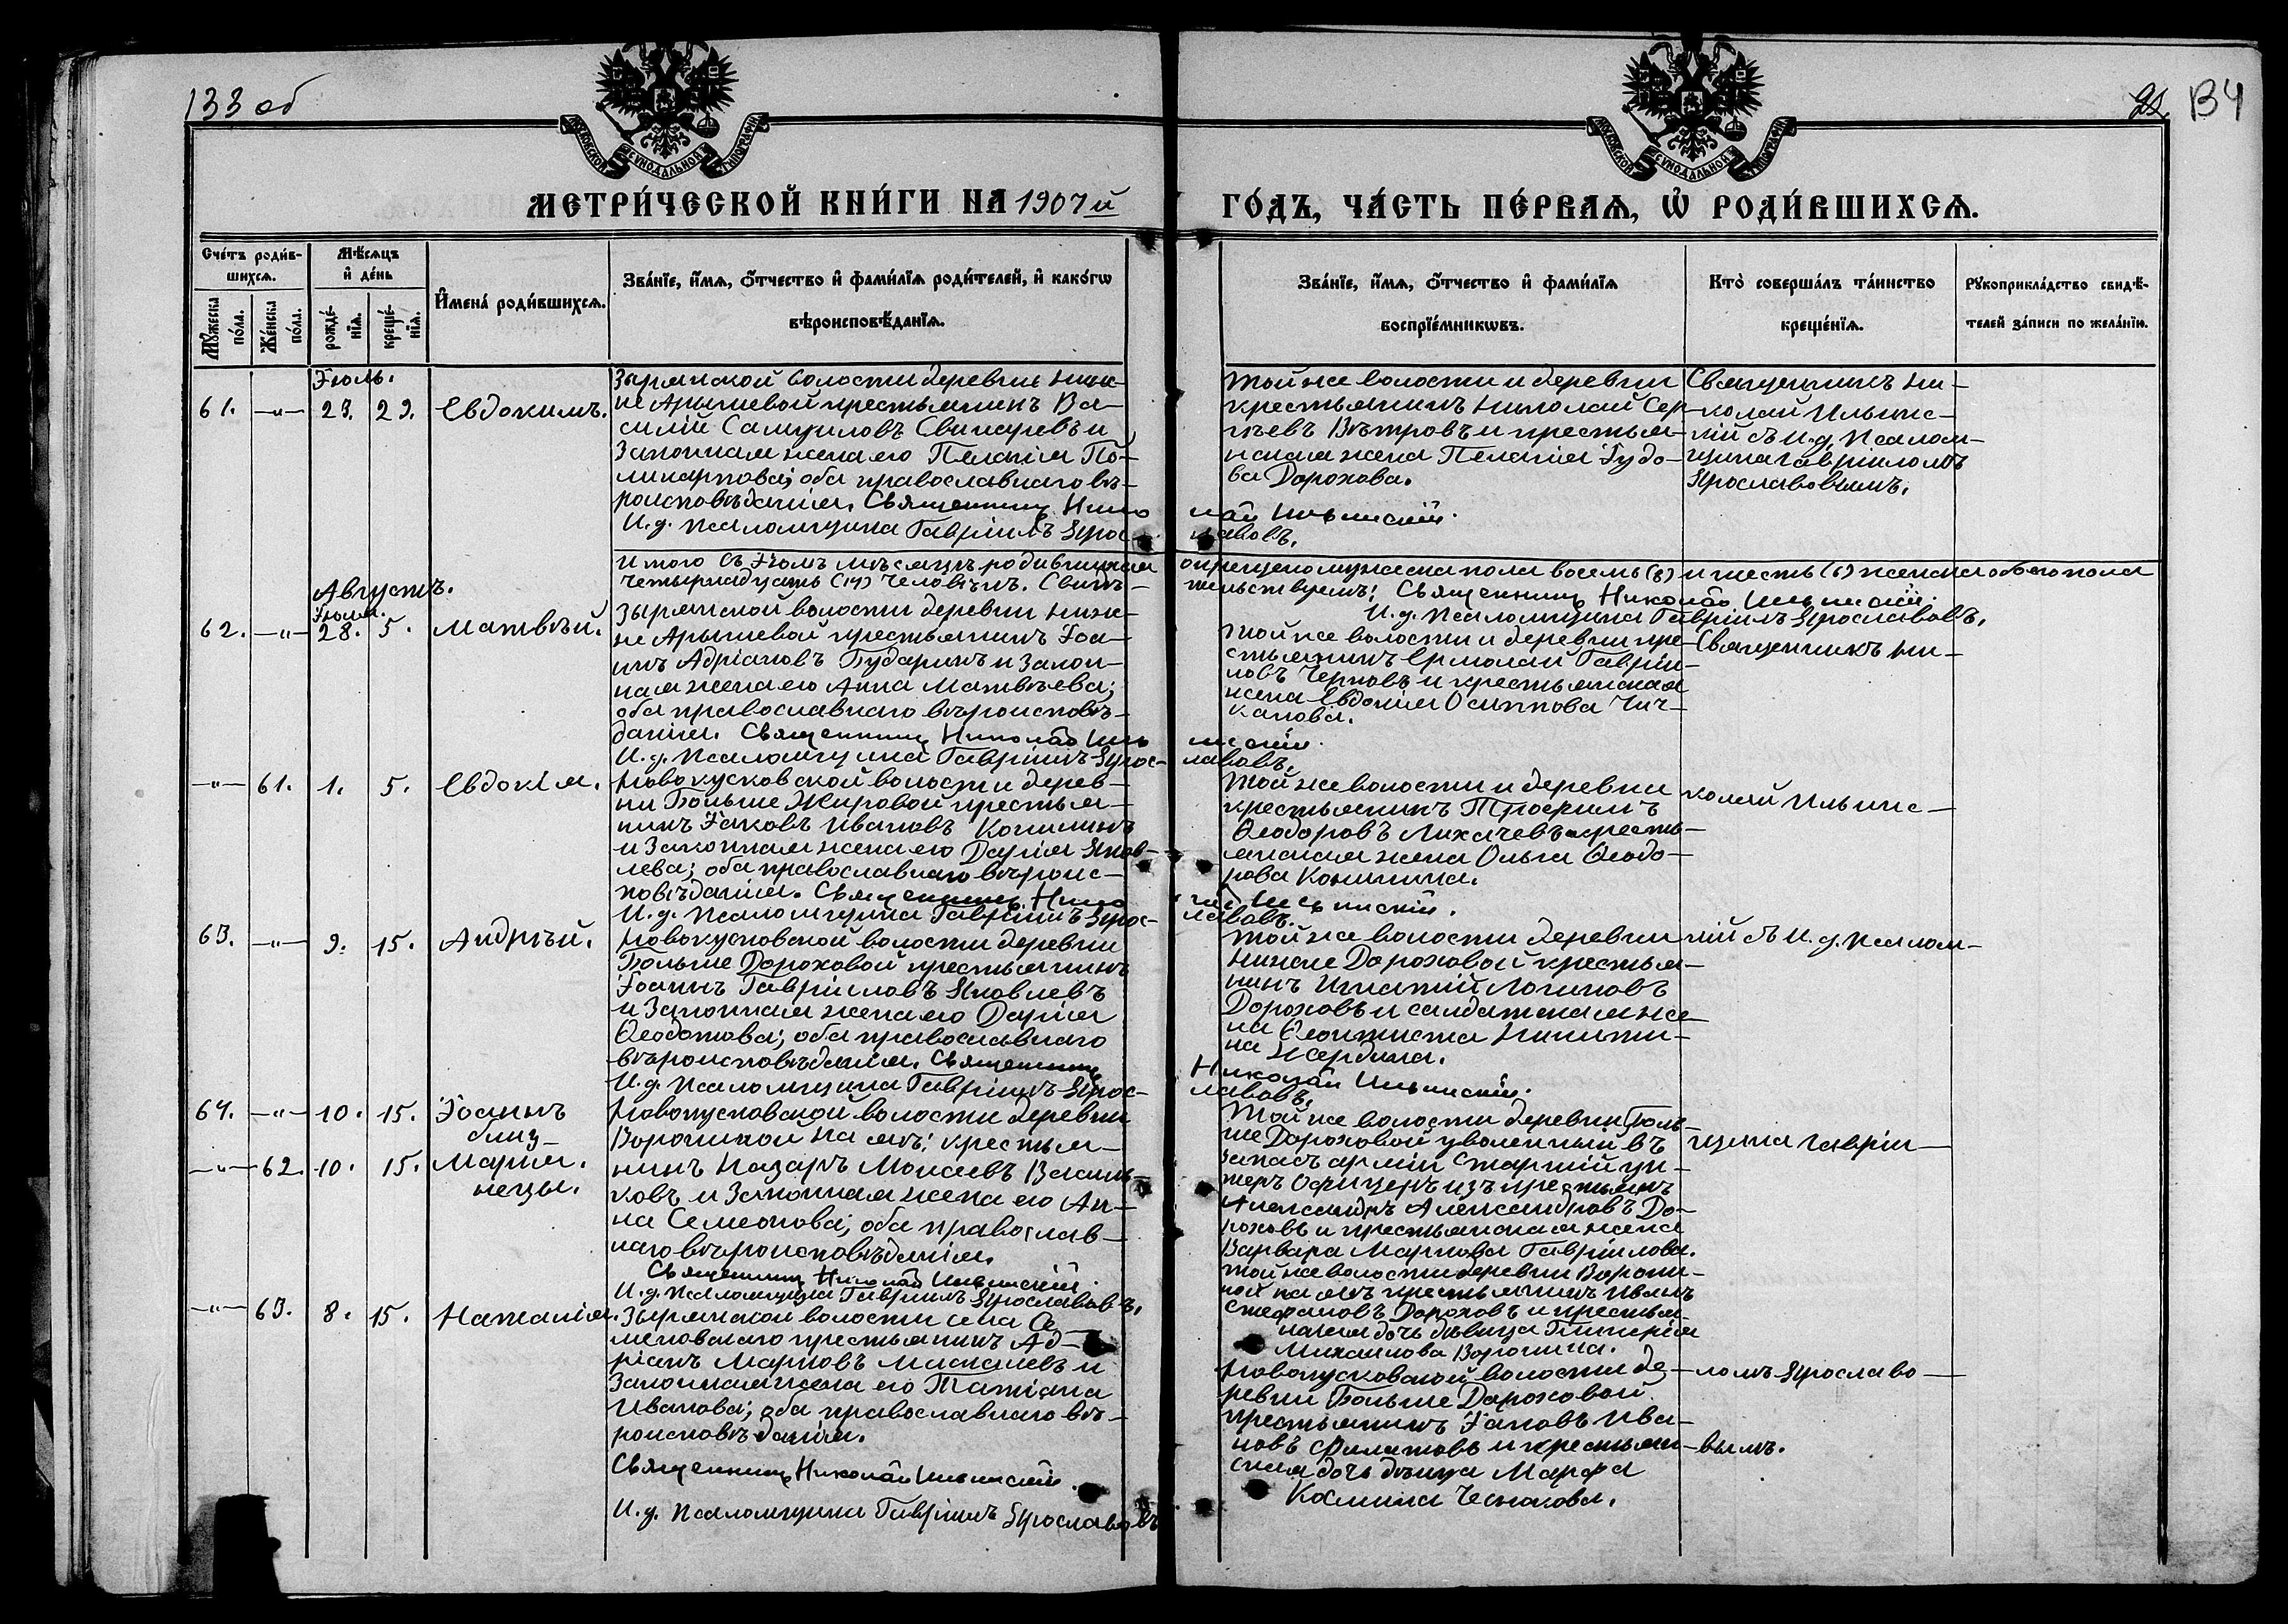 133 об
134
МОСКОВСКОЙ СѴНОДАЛЬНОЙ ТИПОГРАФІИ
МОСКОВСКОЙ СѴНОДАЛЬНОЙ ТИПОГРАФІИ
МЕТРИ́ЧЕСКОЙ КНИ́ГИ НА 1907 й
ГО́ДЪ, ЧА́СТЬ ПЕ́РВАѦ, Ѡ҆ РОДИ́ВШИХСѦ.
Сче́тъ роди́в-
шихсѧ.
Мꙋ́жеска по́ла.
Же́нска по́ла.
Мѣ́сѧцъ
и҆ де́нь
рожде́-
нїѧ.
креще́-
нїѧ.
И҆мена̀ роди́вшихсѧ.
Зва́нїе, и҆́мѧ, ѻ҆́тчество и҆ фами́лїѧ роди́телей, и҆ како́гѡ
вѣроисповѣ́данїѧ.
Зва́нїе, и҆́мѧ, ѻ҆́тчество и҆ фами́лїѧ
воспрїе́мникѡвъ.
Кто̀ соверша́лъ та́инство
креще́нїѧ.
Рꙋкоприкла́дство свидѣ́-
телей за́писи по жела́нїю.
Іюль.
61. —"— 23. 29. Евдокимъ.
Зырянской волости деревни Ниж-
не Арышевой крестьянинъ Ва-
силій Самуиловъ Свинаревъ и
Законная жена его Пелагія По-
ликарпова; оба православнаго вѣ-
роисповѣданія. Священникъ Нико
И. д. Псаломщика Гавріилъ Ярос-
Той же волости и деревни
крестьянинъ Николай Сер-
гѣевъ Вѣтровъ и крестья-
нская жена Пелагія Гудо-
ва Дорохова.
лай Ильинскій.
лавовъ.
Священникъ Ни-
колай Ильинс-
кій съ И. д. Псалом-
щика Гавріиломъ
Ярославовымъ.
Итого въ Іюлѣ мѣсяцѣ родившихся
четырнадцать (14) человѣкъ. Свидѣ-
и крещено мужеска пола восемь (8) и шесть (6) женска обоего пола
тельствуемъ: Священникъ Николай Ильинскій.
И. д. Псаломщика Гавріилъ Ярославовъ.
Августъ.
Іюля.
62. —"— 28. 5. Матвѣй.
Зырянской волости деревни Ниж-
не Арышевой крестьянинъ Іоа-
ннъ Адріановъ Бударинъ и Закон-
ная жена его Анна Матвѣева;
оба православнаго вѣроисповѣ-
данія. Священникъ Николай Иль
И. д. Псаломщика Гавріилъ Ярос-
Той же волости и деревни кре-
стьянинъ Ермолай Гаврiи-
ловъ Черновъ и крестьянская
жена Евдокія Осиппова Чич-
канова.
инскій.
лавовъ.
Священникъ Ни-
—"— 61. 1. 5. Евдокія.
Новокусковской волости дерев-
ни Больше Жировой крестья-
нинъ Іаковъ Ивановъ Конининъ
и Законная жена его Дарія Яков-
лева; оба православнаго вѣроис-
повѣданія. Священникъ Нико
И. д. Псаломщика Гавріилъ Ярос-
Той же волости и деревни
крестьянинъ Трофимъ
Ѳеодоровъ Лихачевъ и кресть-
янская жена Ольга Ѳеодо-
рова Конинина.
лай Ильинскій.
лавовъ.
колай Ильинс-
63. —"— 9. 15. Андрѣй.
Новокусковской волости деревни
Больше Дороховой крестьянинъ
Іоаннъ Гавріиловъ Яковлевъ
и Законная жена его Дарія
Ѳеодотова; оба православнаго
вѣроисповѣданія. Священникъ
И. д. Псаломщика Гавріилъ Ярос-
Той же волости деревни
Ниже Дороховой крестья-
нинъ Игнатій Логиновъ
Дороховъ и солдатская же
на Ѳеоктиста Никити-
на
Николай Ильинскій.
лавовъ.
кій съ И. д. Псалом-
64. —"— 10. 15. Іоаннъ
близ-
—"— 62. 10. 15. Марія.
нецы.
Новокусковской волости деревни
Ворониной на яѣ: крестья-
нинъ Назаръ Моисеевъ Василь-
ковъ и Законная жена его Ан-
на Семеонова; оба православ-
наго вѣроисповѣданія.
Священникъ Николай Ильинскій.
И. д. Псаломщика Гавріилъ Ярославовъ.
Той же волости деревни Боль-
ше Дороховой уволенный въ
запасъ арміи старшій ун-
теръ Офицеръ изъ крестьянъ
Александръ Александровъ До-
роховъ и крестьянская жена
Варвара Маркова Гавріилова.
Той же волости деревни Ворони-
ной на яѣ крестьянинъ Иванъ
Стефановъ Дороховъ и крестья-
нская дочь дѣвица Гликерія
Михаилова Воронина.
щика Гавріи-
—"— 63. 8. 15. Наталія.
Зырянской волости села Се
меновскаго крестьянинъ Ад-
ріанъ Марковъ Маскалевъ и
Законная жена его Татіана
Иванова; оба православнаго вѣ-
роисповѣданія.
Священникъ Николай Ильинскій.
И. д. Псаломщика Гавріилъ Ярославовъ
Новокусковской волости де-
ревни Больше Дороховой
крестьянинъ Іаковъ Ива-
новъ Филатовъ и крестьян-
ская дочь дѣвица Марфа
Космина Чеснокова.
ломъ Ярославо-
вымъ.